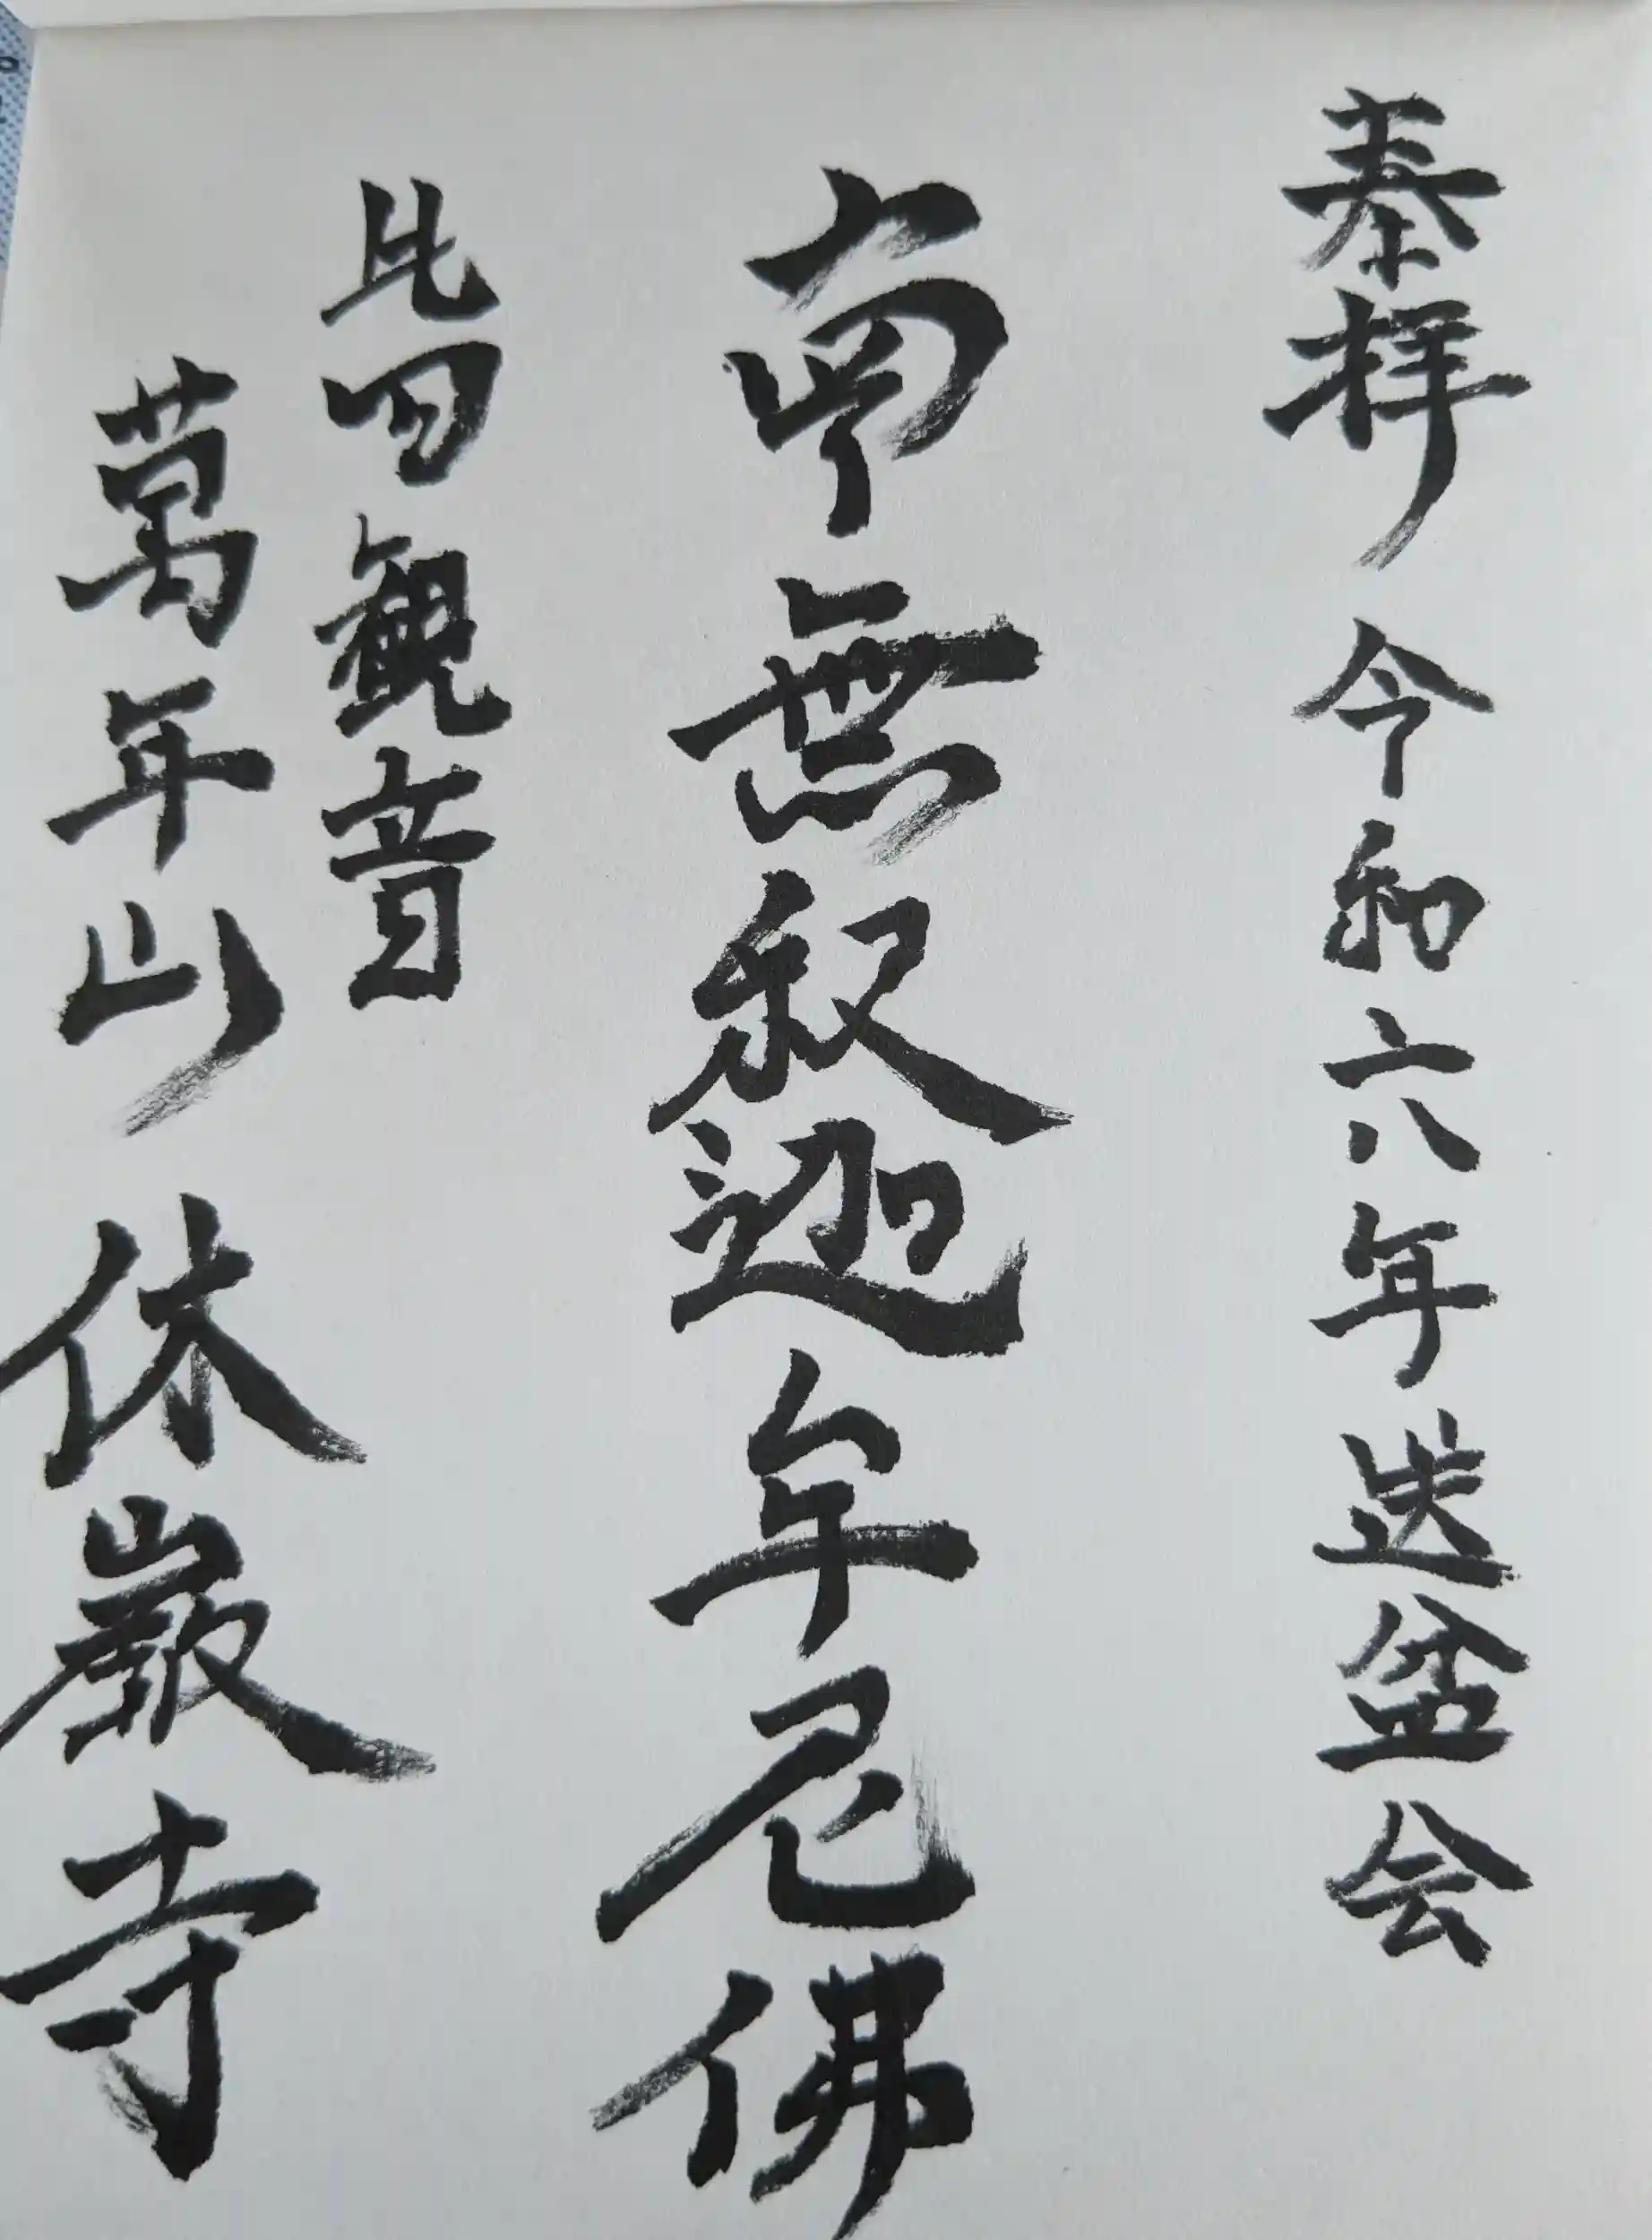 奉拝 令和六年送盆会
南無釈迦牟尼佛
北向観音
萬年山 休巖寺